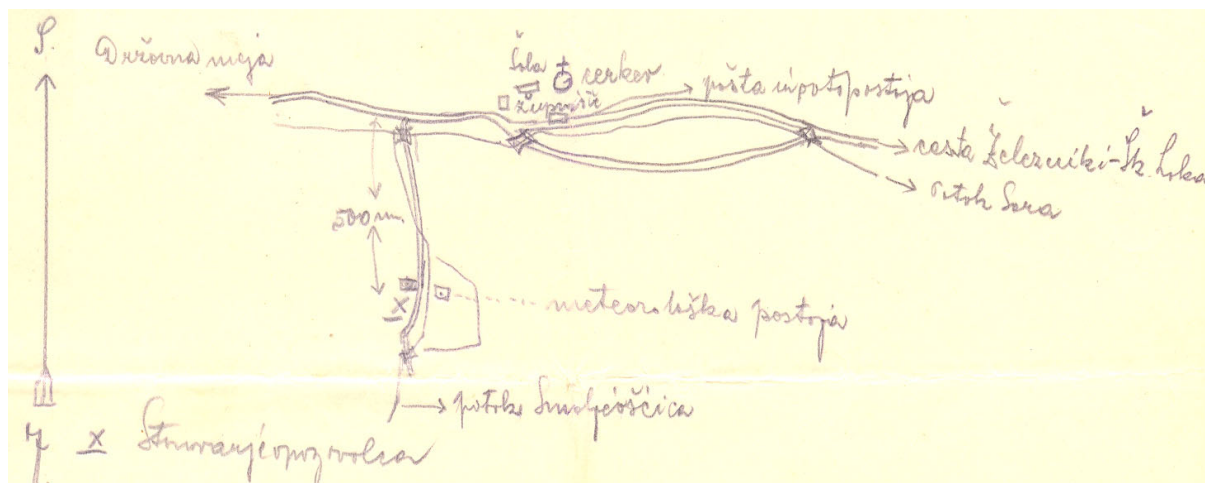 S.
Državna meja
Šola
cerkev
župnišče
pošta in
cesta Železniki-Šk. Loka
otok Sora
500 m.
x
meteorološka postoja
potok
J
x Stanovanje opazovalca